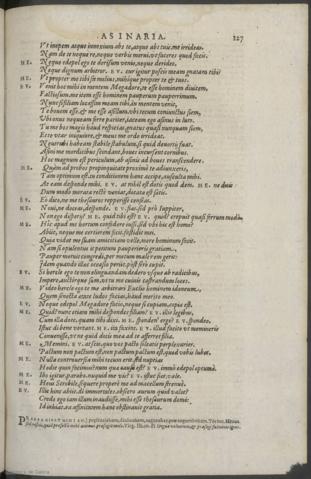 ASINARIA. 227
Vt inopem atque innoxium abs te, atque abs tuis, me irrideas.
Nam de te neque re, neque verbis merui, vt faceres quod facis.
ME. Neque edepol ego te derisum venio, neque derideo,
Neque dignum arbitror. EV. cur igitur poscis meam gnatam tibi?
ME. Vt propter me tibi sit melius, mihique propter te & tuos.
EV. Venit hoc mihi in mentem Megadore, te esse hominem diuitem,
Factiosum, me item esse hominem pauperum pauperrimum.
Nunc si filiam locassem meam tibi, in mentem venit,
Te bouem esse, & me esse asellum, vbi tecum coniunctus siem,
Vbi onus nequeam ferre pariter, iaceam ego asinus in luto.
Tu me bos magis haud respicias, gnatus quasi nunquam siem,
Et te vtar iniquiore, & meus me ordo irrideat.
Neutrubi habeam stabile stabulum, si quid diuortii fuat.
Asini me mordicibus scindant, boues incursent cornibus.
Hoc magnum est periculum, ab asinis ad boues transcendere.
ME. Quàm ad probos propinquitate proximè te adiunxeris,
Tam optimum est. tu conditionem hanc accipe, ausculta mihi.
Atque eam desponde mihi. EV. at nihil est dotis quod dem. ME. ne duis.
Dum modo morata rectè veniat, dotata est satis.
EV. Eò dico, ne me thesauros repperisse censeas.
ME. Noui, ne doceas, desponde. EV. fiat. sed prò Iuppiter,
Num ego disperij? ME. quid tibi est? EV. quid? crepuit quasi ferrum modò.
ME. Hic apud me hortum confodere iussi. sed vbi hic est homo?
Abiit, neque me certiorem fecit. fastidit mei.
Quia videt me suam amicitiam velle, more hominum facit.
Nam si opulentus it petitum pauperioris gratiam,
Pauper metuit congredi, per metum malè rem gerit:
Idem quando illaec occasio periit, pòst serò cupit.
EV. Si hercle ego te non elinguandam dedero vsque ab radicibus,
Impero, auctórque sum, vt tu me cuiuis castrandum loces.
ME. Video hercle ego te me arbitrari Euclio hominem idoneum,
Quem senecta aetate ludos facias, haud merito meo.
EV. Neque edepol Megadore facio, neque si cupiam, copia est.
ME. Quid? nunc etiam mihi despondes filiam? EV. illis legibus,
Cum illa dote, quam tibi dixi. ME. sponden' ergò? EV. spondeo,
Istuc di bene vortant. ME. ita faxint. EV. illud facito vt memineris
Conuenisse, vt ne quid dotis mea ad te afferret filia.
ME. Memini. EV. at scio, quo vos pacto soleatis perplexarier.
Pactum non pactum est, non pactum pactum est, quod vobis lubet.
ME. Nulla controuersia mihi tecum erit. sed nuptias
Hodie quin faciamus nunquae causa est? EV. immò edepol optuma.
ME. Ibo igitur, parabo. nunquid me vis? EV. istuc. fiat. vale.
ME. Heus Strobile, sequere properè me ad macellum strenuè.
EV. Illic hinc abiit. di immortales, obsecro aurum quid valet?
Credo ego iam illum inaudisse, mihi esse thesaurum domi:
Id inhiat. ea affinitatem hanc obstinauit gratia.